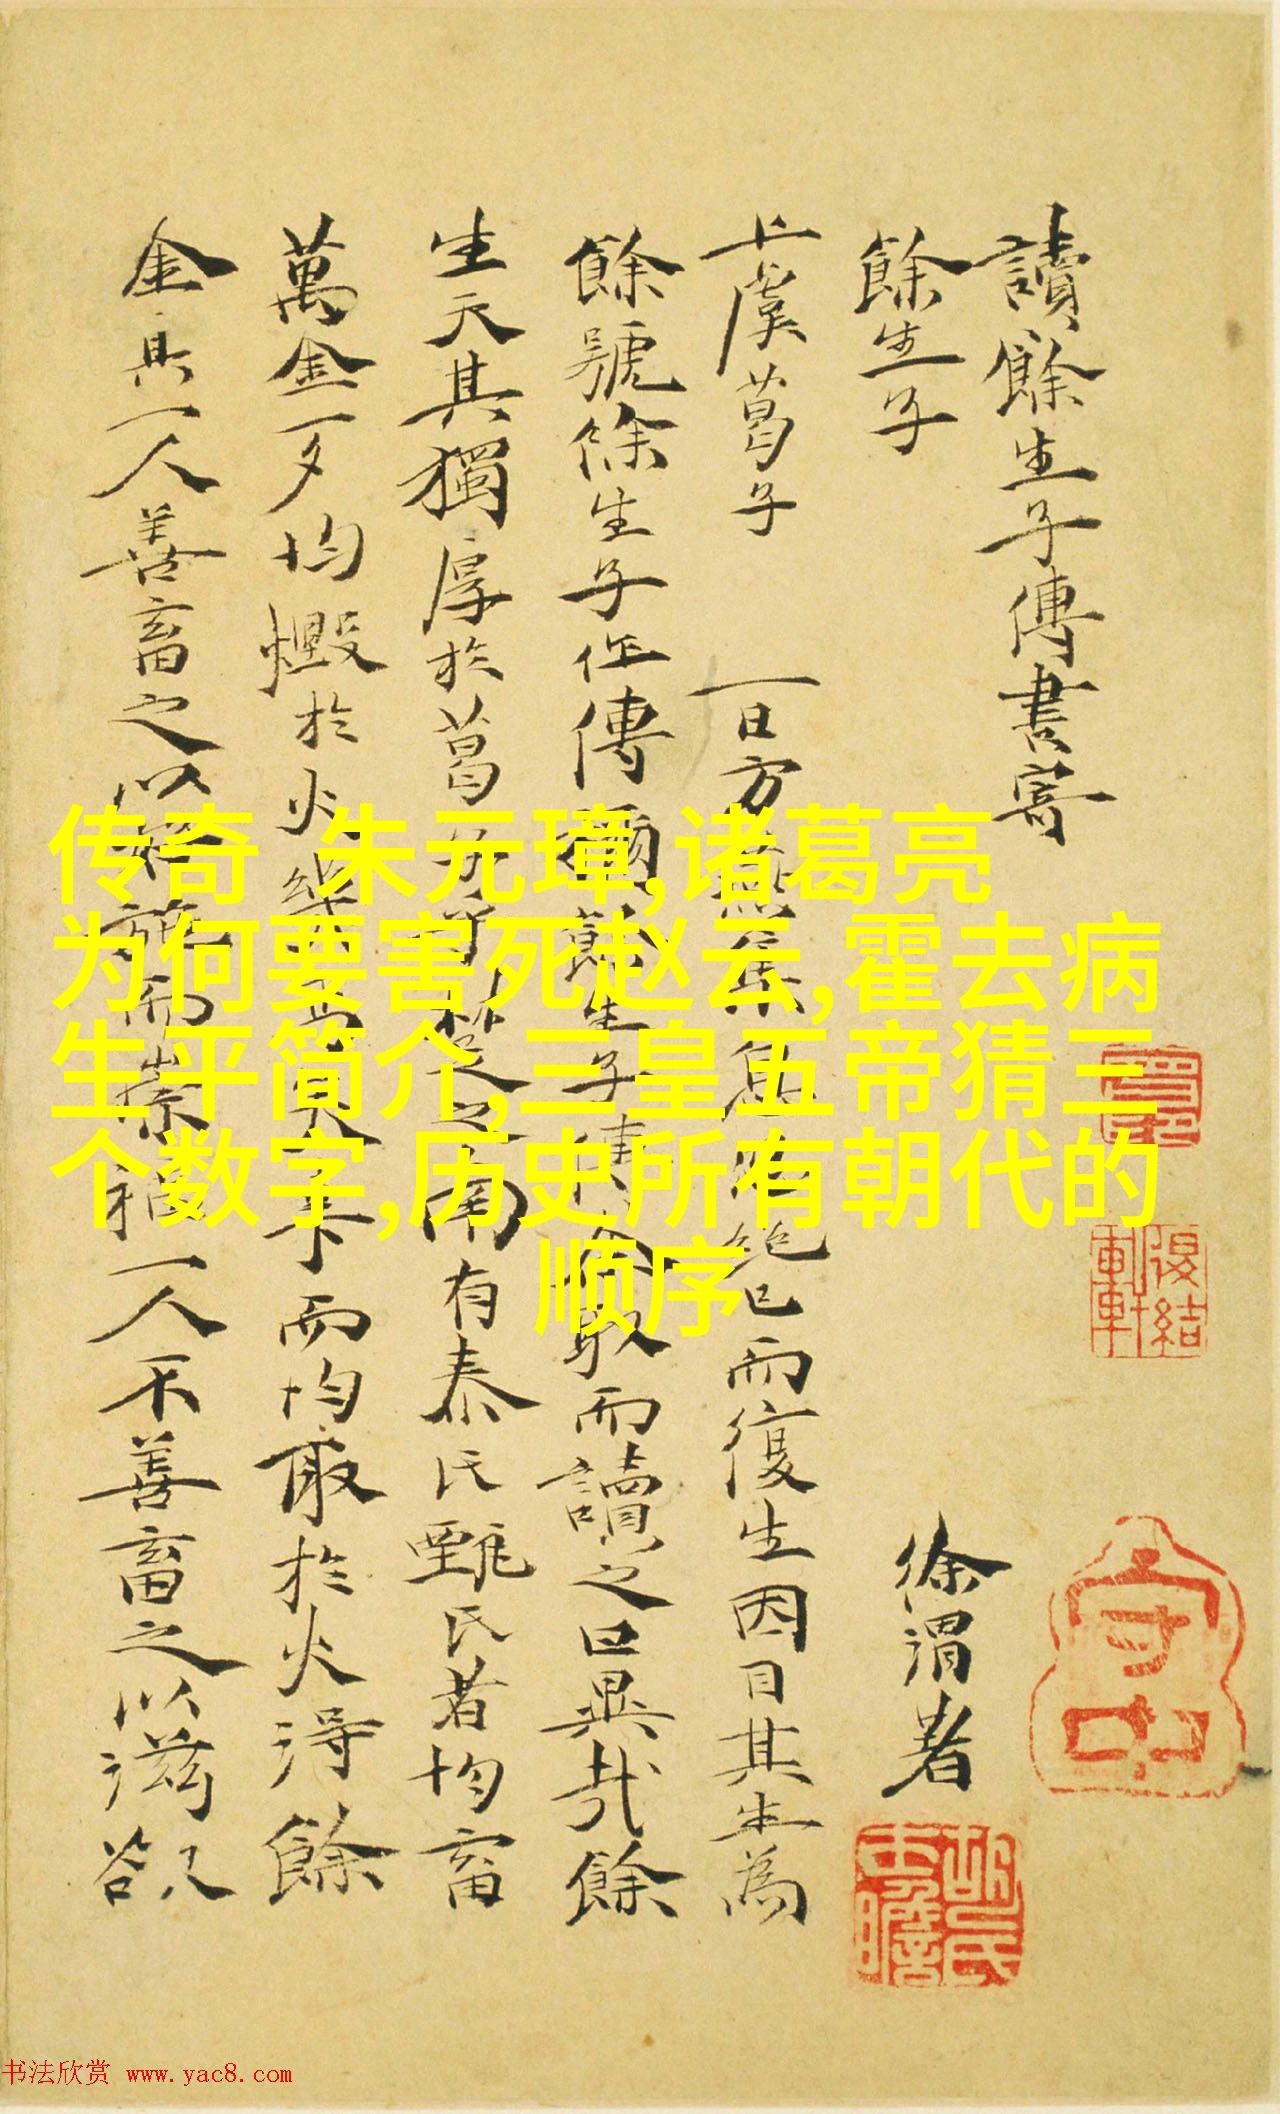 讀餘生子傳書寄
餘生子
徐渭著
上虞葛子
一日方燕集
絶已而復生因目其生為
餘號餘生子作傳
餘生子傳
取而讀之曰異哉餘
生天其獨厚於葛
楚之南有泰氏甄氏者均畜
萬金一夕均燬於火
而均取於火得餘
金其一人善畜之以
施而崇福一人不善畜之以滋欲
传奇 朱元璋,诸葛亮
为何要害死赵云,霍去病
生平简介,三皇五帝猜三
个数字,历史所有朝代的
顺序
守中
书法欣赏 www.yac8.com